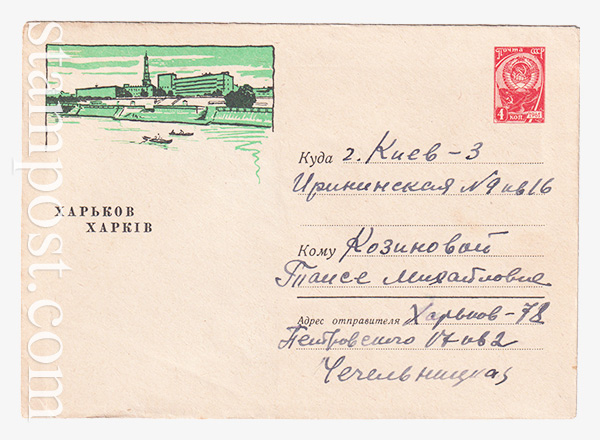 stampost.com
Почта СССР
4 коп
ХАРЬКОВ
ХАРКІВ
Куда г. Киев-3
Ирининская №9 кв 16
Кому Козиновой
Таисе Михайловне
Адрес отправителя Харьков-78
Петровского 17 кв 2
Чечельницкая